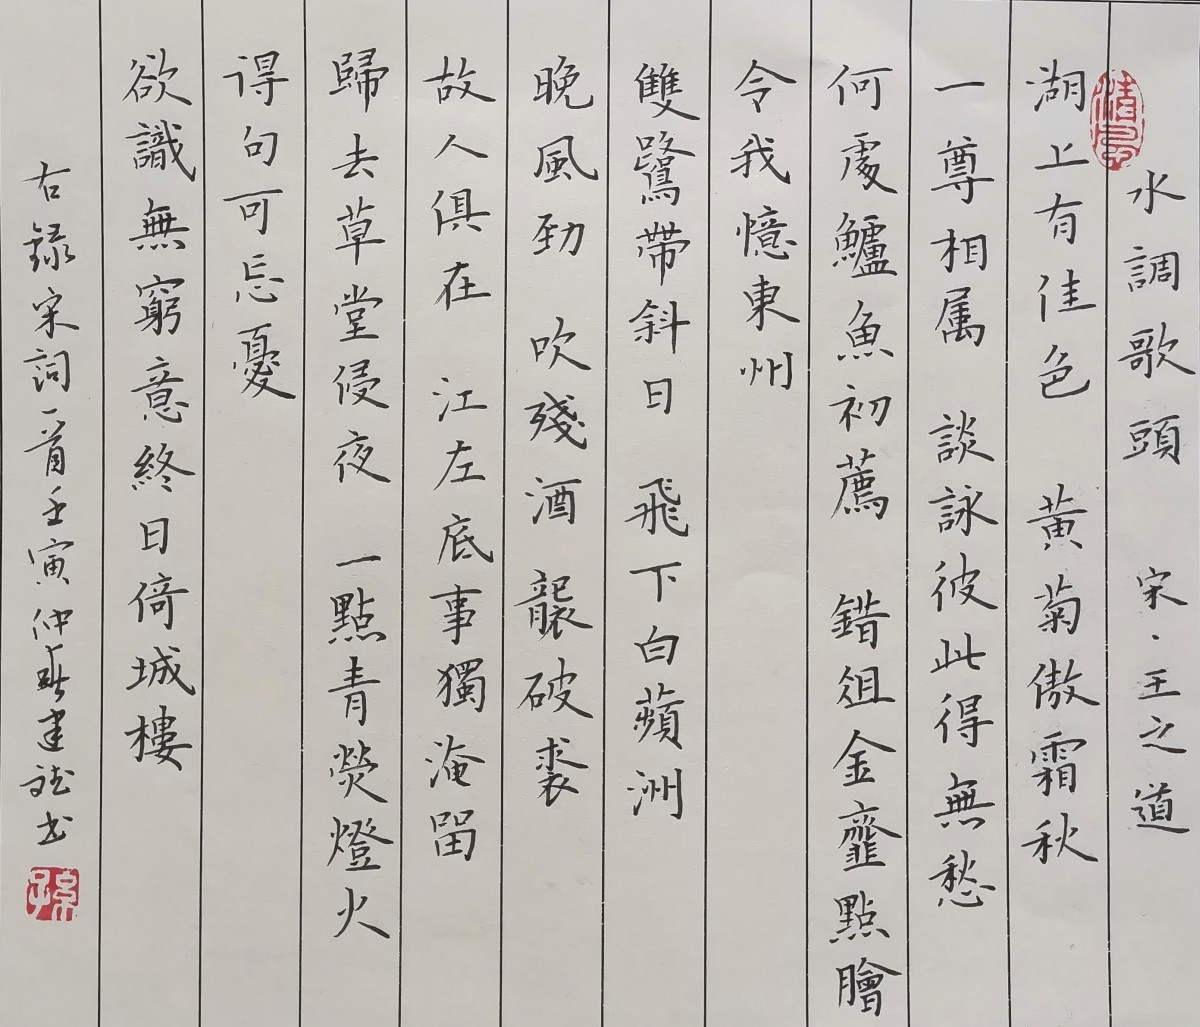 水調歌頭 宋·王之道
湖上有佳色 黃菊傲霜秋
一尊相属 談詠彼此得無愁
何處鱸魚初薦 錯俎金虀點膾
令我憶東州
雙鷺帶斜日 飛下白蘋洲
晚風勁 吹殘酒 襲破裘
故人俱在 江左底事獨淹留
歸去草堂侵夜 一點青熒燈火
得句可忘憂
欲識無窮意終日倚城樓
右録宋詞一首壬寅仲春建誌书
孫